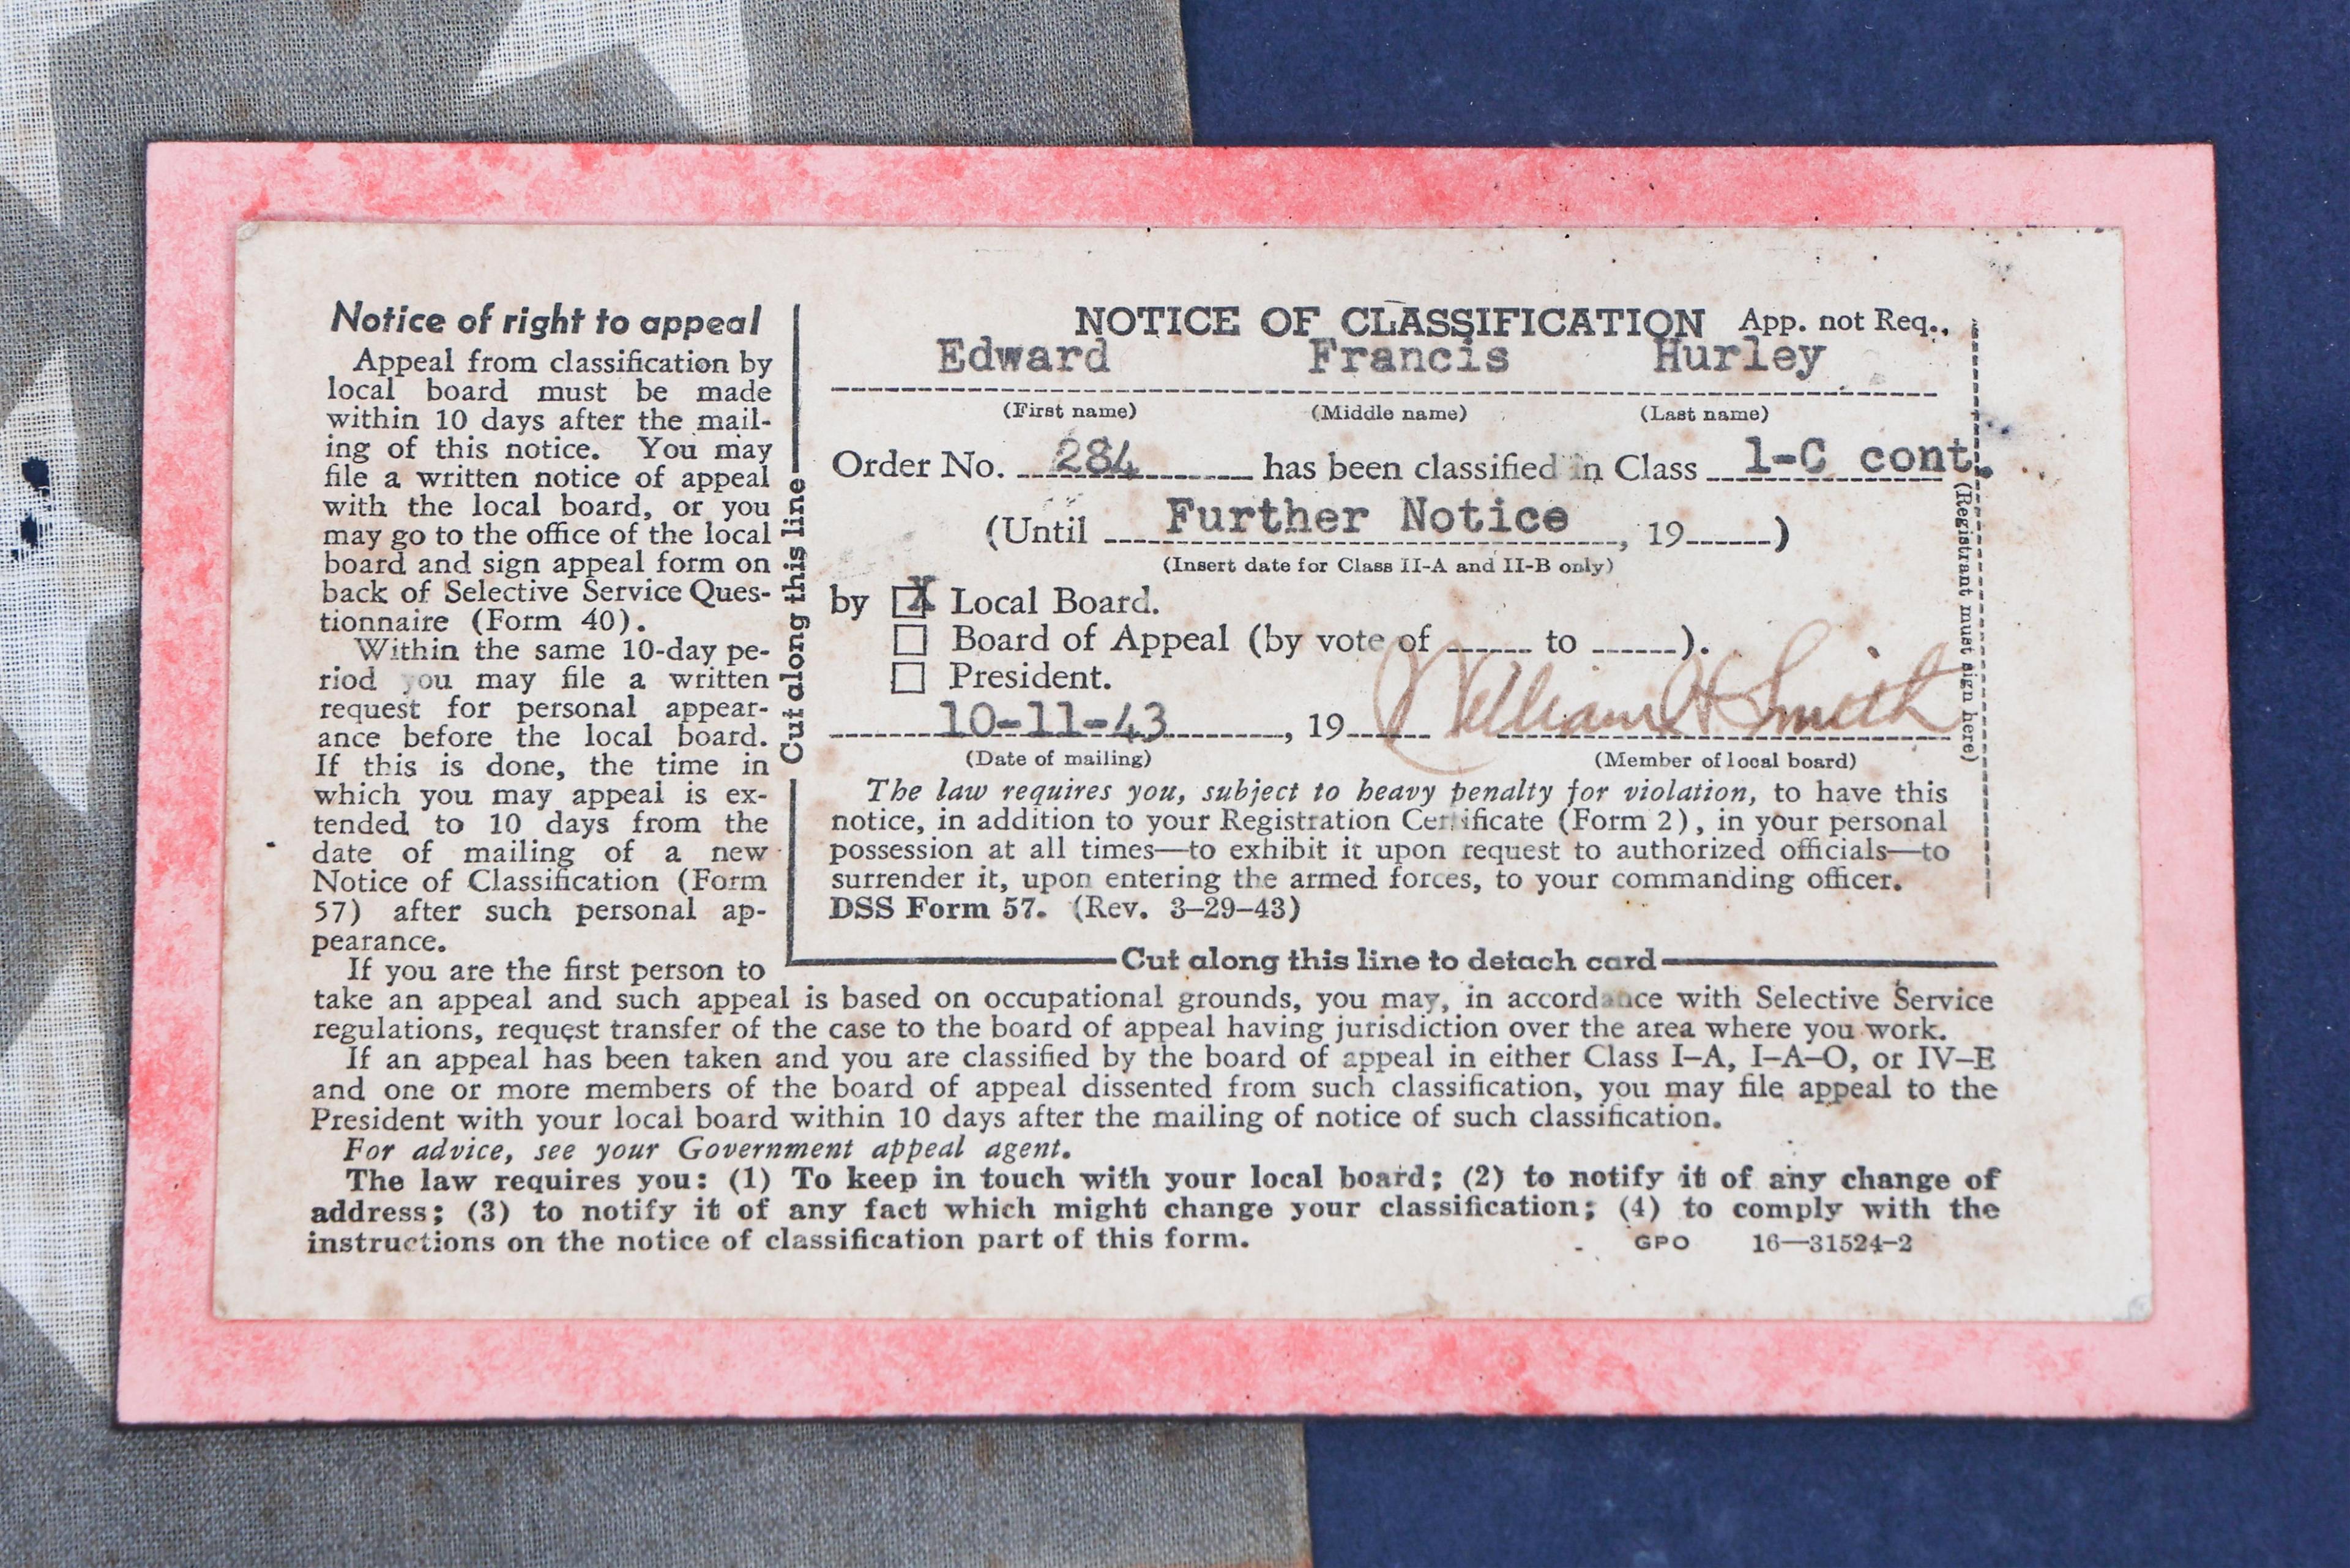 Notice of right to appeal
Appeal from classification by
local board must be made
within 10 days after the mail-
ing of this notice. You may
file a written notice of appeal
with the local board, or you
may go to the office of the local
board and sign appeal form on
back of Selective Service Ques-
tionnaire (Form 40).
Within the same 10-day pe-
riod you may file a written
request for personal appear-
ance before the local board.
If this is done, the time in
which you may appeal is ex-
tended to 10 days from the
date of mailing of a new
Notice of Classification (Form
57) after such personal ap-
pearance.
If you are the first person to
Cut along this line
NOTICE OF CLASSIFICATION App. not Req.,
Edward Francis Hurley
(First name) (Middle name) (Last name)
Order No. 284 has been classified in Class 1-C cont.
(Until Further Notice, 19)
(Insert date for Class II-A and II-B only)
by X Local Board.
Board of Appeal (by vote of to ).
President.
10-11-43, 19 William H Smith
(Date of mailing) (Member of local board)
(Registrant must sign here)
The law requires you, subject to heavy penalty for violation, to have this
notice, in addition to your Registration Certificate (Form 2), in your personal
possession at all times—to exhibit it upon request to authorized officials—to
surrender it, upon entering the armed forces, to your commanding officer.
DSS Form 57. (Rev. 3–29–43)
Cut along this line to detach card
take an appeal and such appeal is based on occupational grounds, you may, in accordance with Selective Service
regulations, request transfer of the case to the board of appeal having jurisdiction over the area where you work.
If an appeal has been taken and you are classified by the board of appeal in either Class I–A, I–A–O, or IV–E
and one or more members of the board of appeal dissented from such classification, you may file appeal to the
President with your local board within 10 days after the mailing of notice of such classification.
For advice, see your Government appeal agent.
The law requires you: (1) To keep in touch with your local board; (2) to notify it of any change of
address; (3) to notify it of any fact which might change your classification; (4) to comply with the
instructions on the notice of classification part of this form.
GPO 16—31524-2